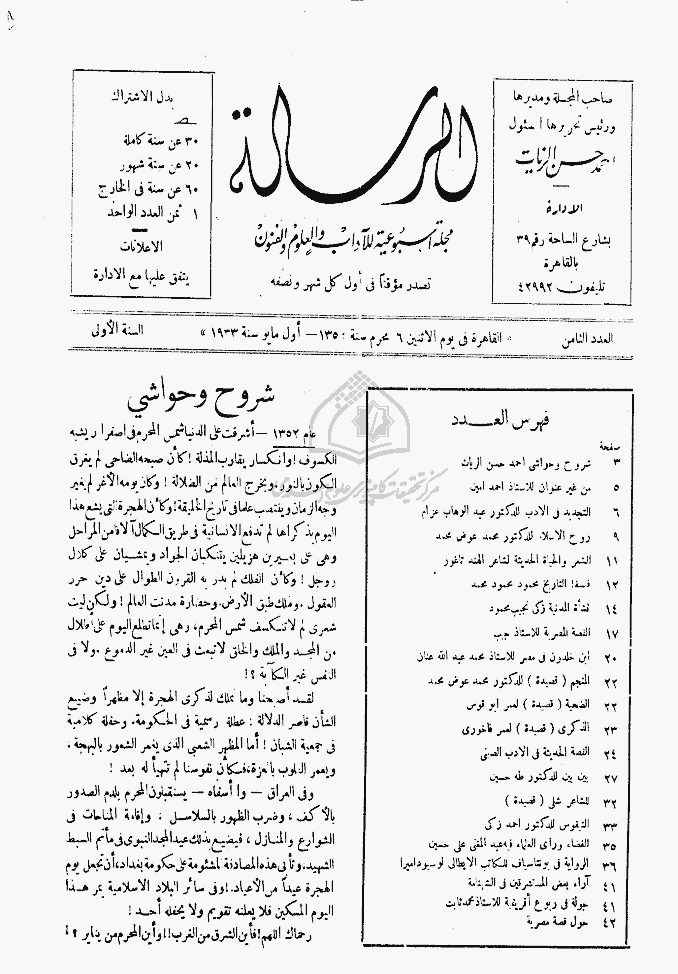 صاحب المجلة ومديرها
ورئيس تحريرها المسئول
احمد حسن الزيات
الادارة
بشارع الساحة رقم ٣٩
بالقاهرة
تليفون ٤٢٩٩٢
الرسالة
مجلة أسبوعية للآداب والعلوم والفنون
تصدر مؤقتاً فى أول كل شهر ونصفه
بدل الاشتراك
٣٠ عن سنة كاملة
٢٠ عن ستة شهور
٦٠ عن سنة فى الخارج
١ ثمن العدد الواحد
الاعلانات
يتفق عليها مع الادارة
العدد الثامن
« القاهرة فى يوم الاثنين ٦ محرم سنة — أول مايو سنة ١٩٣٣ »
السنة الأولى
فهرس العدد
صفحة
٣ شروح وحواشى احمد حسن الزيات
٥ من غير عنوان للاستاذ احمد امين
٦ التجديد فى الادب للدكتور عبد الوهاب عزام
٩ روح الاسلام للدكتور محمد عوض محمد
١١ الشعر والحياة الحديثة لشاعر الهند تاغور
١٢ فلسفة التاريخ محمود محمود محمد
١٤ نشأة المدنية زكى نجيب محمود
١٧ القصة المصرية للاستاذ جيب
٢٠ ابن خلدون فى مصر للاستاذ محمد عبد الله عنان
٢٢ المنجم ( قصيدة ) للدكتور محمد عوض محمد
٢٢ الضحية ( قصيدة ) لعمر ابو قوس
٢٣ الذكرى ( قصيدة ) لعمر فاخورى
٢٤ القصة الحديثة فى الادب الصينى
٢٧ بين بين للدكتور طه حسين
٣٢ للشاعر شلى ( قصيدة )
٣٣ التيفوس للدكتور احمد زكى
٣٥ الفضاء ورأى العلماء فيه عبد المغنى على حسين
٣٦ الرواية بونتاسياف للكاتب الايطالى لوسيو داميرا
٤١ آراء بعض المستشرقين فى
٤١ جولة فى ربوع أفريقية للاستاذ محمد ثابت
٤٢ حول قصة مصرية
شروح وحواشي
عام ١٣٥٢ — أشرقت على الدنيا شمس المحرم فى اصفرار يشبه
الكسوف ! وانكسار يقارب المذلة ! كأن صبحه الضاحى لم يغرق
الكون بالنور، ويخرج العالم من الضلالة ! وكأن يومه الأغر لم يغير
وجه الزمان وينتصب علما فى تاريخ الخليقة ! وكأن الهجرة التى يشع هذا
اليوم بذكراها لم تدفع الانسانية فى طريق الكمال آلافا من المراحل
وهى على بعيرين هزيلين يتنكبان الجواد ويمشيان على كلال
ووجل ! وكأن الفلك لم يدر به القرون الطوال على دين حرر
العقول. وملك طبق الأرض. وحضارة مدنت العالم ! ولكن ليت
شعرى لم لا تنكسف شمس المحرم، وهى إنما تطلع اليوم على أطلال
من المجد والملك والخلق لا تبعث فى العين غير الدموع. ولا فى
النفس غير الكآبة ؟ !
لقد أصبحنا وما نملك لذكرى الهجرة إلا مظهراً وضيع
الشأن قاصر الدلالة : عطلة رسمية فى الحكومة. وحفلة كلامية
فى جمعية الشبان ! أما المظهر الشعبى الذى يغمر الشعور بالبهجة.
ويعمر القلوب بالعزة، فكأن نفوسنا لم تتهيأ له بعد !
وفى العراق — وا أسفاه — يستقبلون المحرم بلدم الصدور
بالأكف، وضرب الظهور بالسلاسل، وإقامة المناحات فى
الشوارع والمنازل، فيضيع بذلك عيد المجد النبوى فى مأتم السبط
الشهيد. وتأبى هذه المصادفة المشئومة على حكومة بغداد، أن تجعل يوم
الهجرة عيداً من الأعياد. ! وفى سائر البلاد الاسلامية يمر هذا
اليوم المسكين فلا يعلنه تقويم ولا يحفله أحد !
رحماك اللهم ! فأين الشرق من الغرب !! وأين المحرم من يناير ؟ !